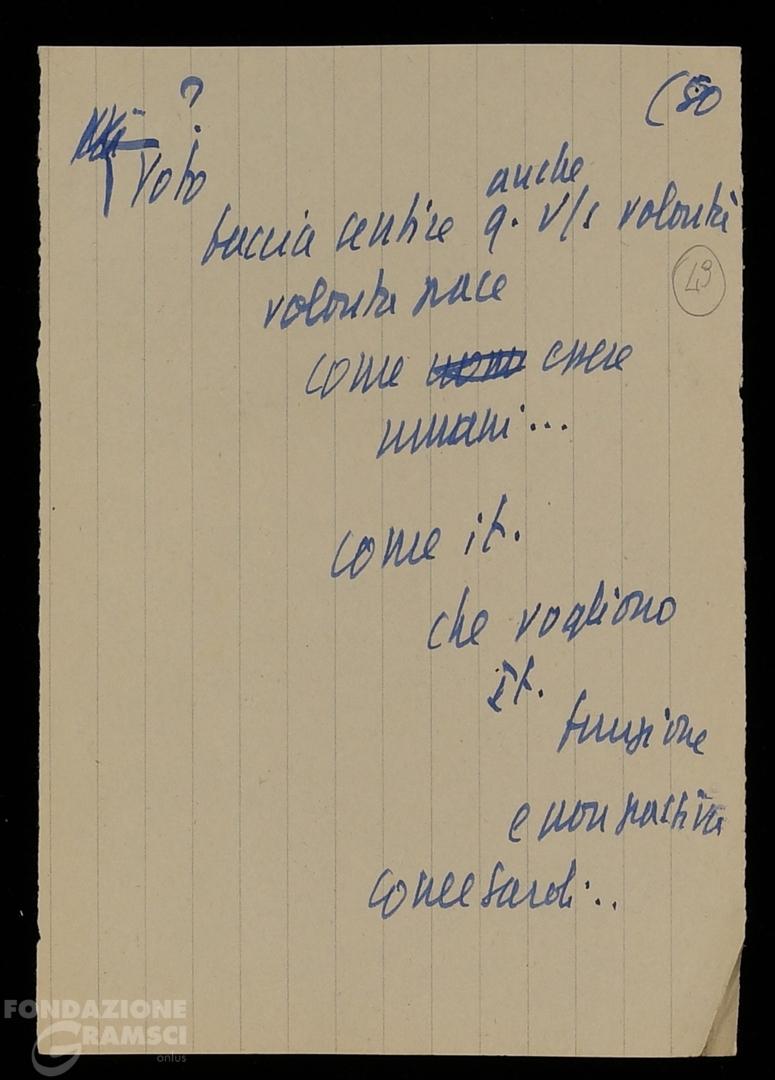 ? (50
Voto
anche
faccia sentire q. v/s volontà
49
volontà pace
come essere
umani...
come it.
che vogliono
It.
funzione
e non passiva
come sardi...
FONDAZIONE
GRAMSCI
onlus